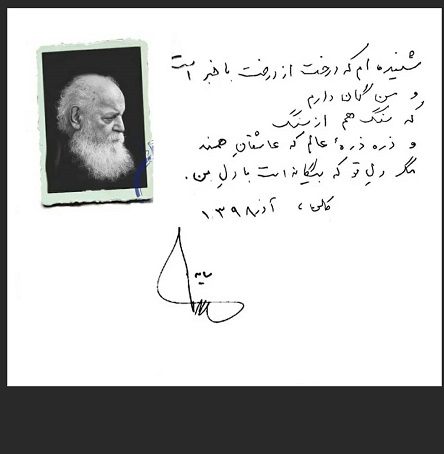 شنیده ام که درخت از درخت باخبر است
و من گمان دارم
که سنگ هم از سنگ
و ذره ذرهٔ عالم که عاشقانِ همند
مگر دلِ تو که بیگانه است با دلِ من.
کلن، آذر ۱۳۹۸
سایه